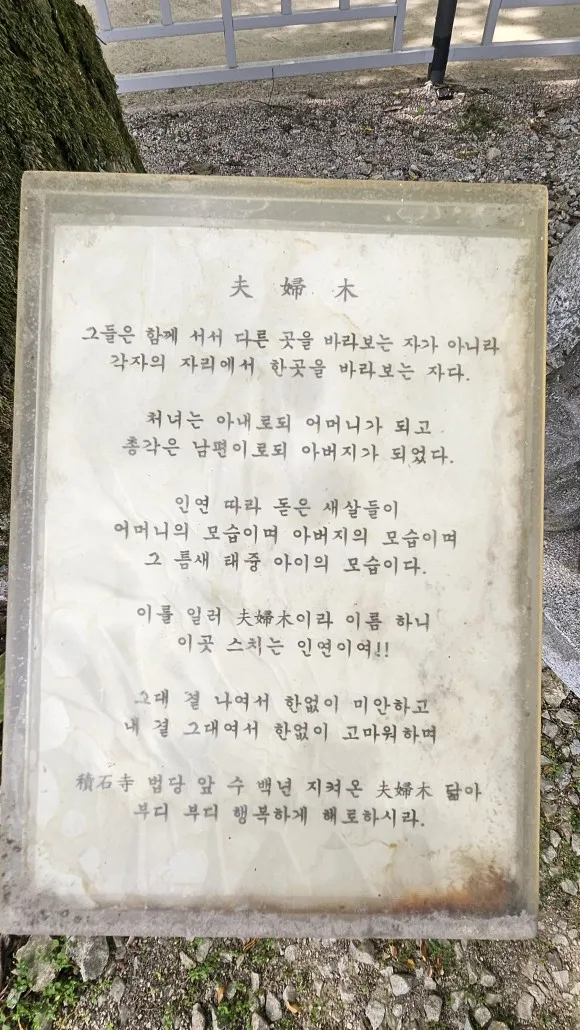 夫 婦 木
그들은 함께 서서 다른 곳을 바라보는 자가 아니라
각자의 자리에서 한곳을 바라보는 자다.
처녀는 아내로되 어머니가 되고
총각은 남편이로되 아버지가 되었다.
인연 따라 돋은 새살들이
어머니의 모습이며 아버지의 모습이며
그 틈새 태중 아이의 모습이다.
이를 일러 夫婦木이라 이름 하니
이곳 스치는 인연이여!!
그대 결 나여서 한없이 미안하고
내 결 그대여서 한없이 고마워하며
積石寺 법당 앞 수 백년 지켜온 夫婦木 닮아
부디 부디 행복하게 해로하시라.